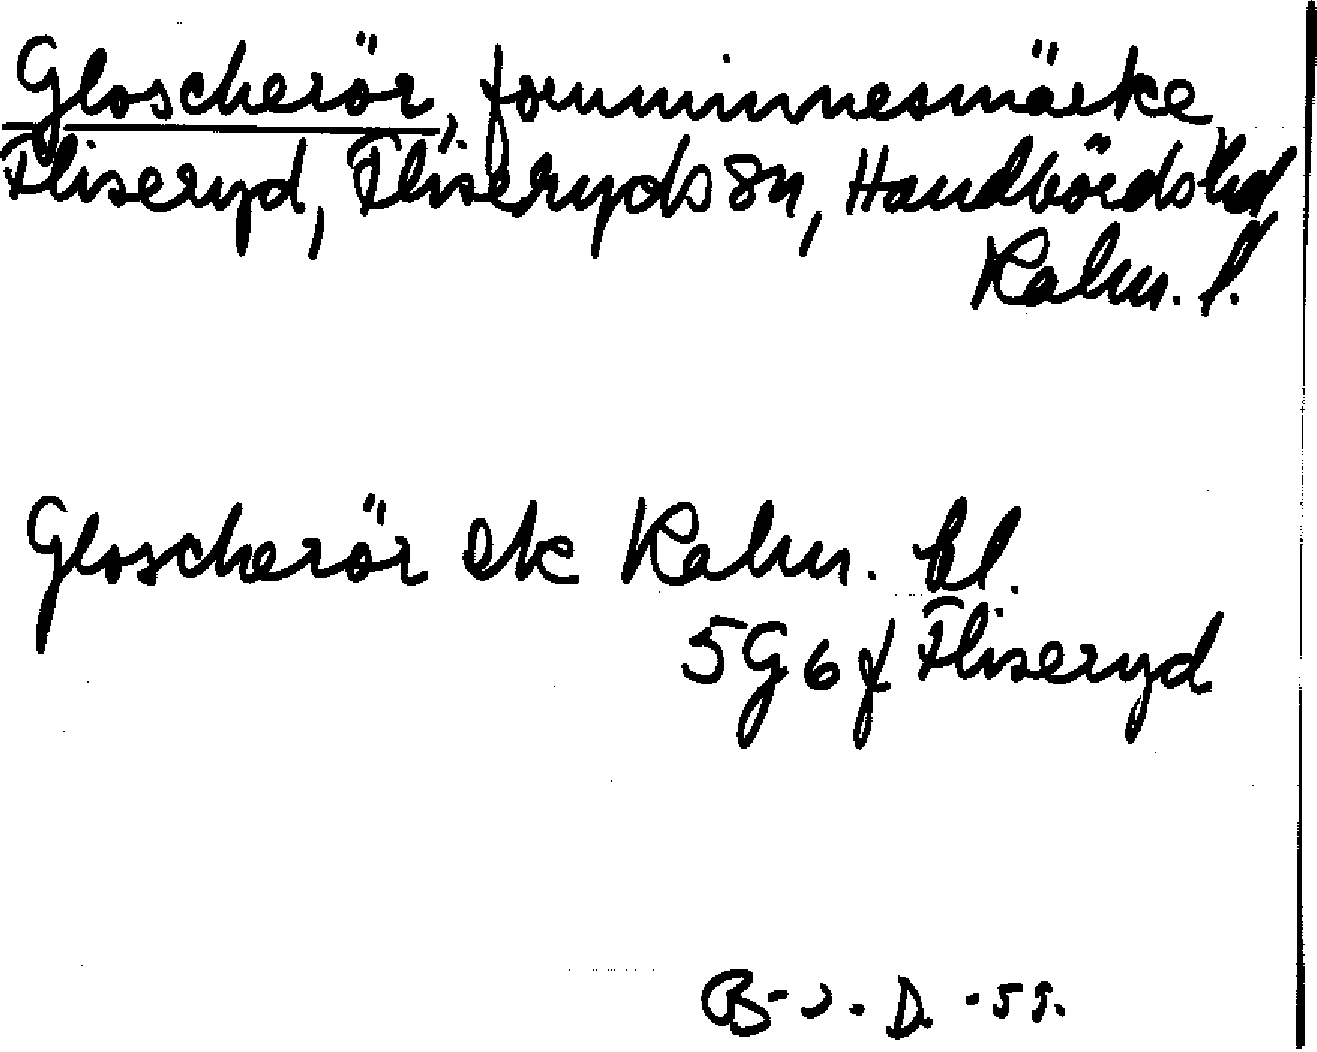 Gloscherör, fornminnesmärke
Fliseryd, Fliseryds sn, Handbörds hd,
Kalm. l.
Gloscherör ek Kalm. bl.
5G6f Fliseryd
B-J. D. -59.